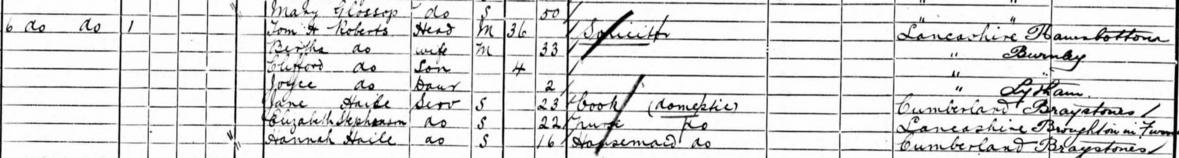 Mary Glossop do S 50 " "
6 do do 1 Tom H Roberts Head M 36 Solicitor Lancashire Ramsbottom
Bertha do wife M 33 " Burnley
Clifford do Son 4 "
Joyce do Daur 2 " Lytham
Jane Haile Serv S 23 Cook (domestic) Cumberland Braystones
Elizabeth Stephenson do S 22 Nurse do Lancashire Broughton in Furn
Hannah Haile do S 16 Housemaid do Cumberland Braystones